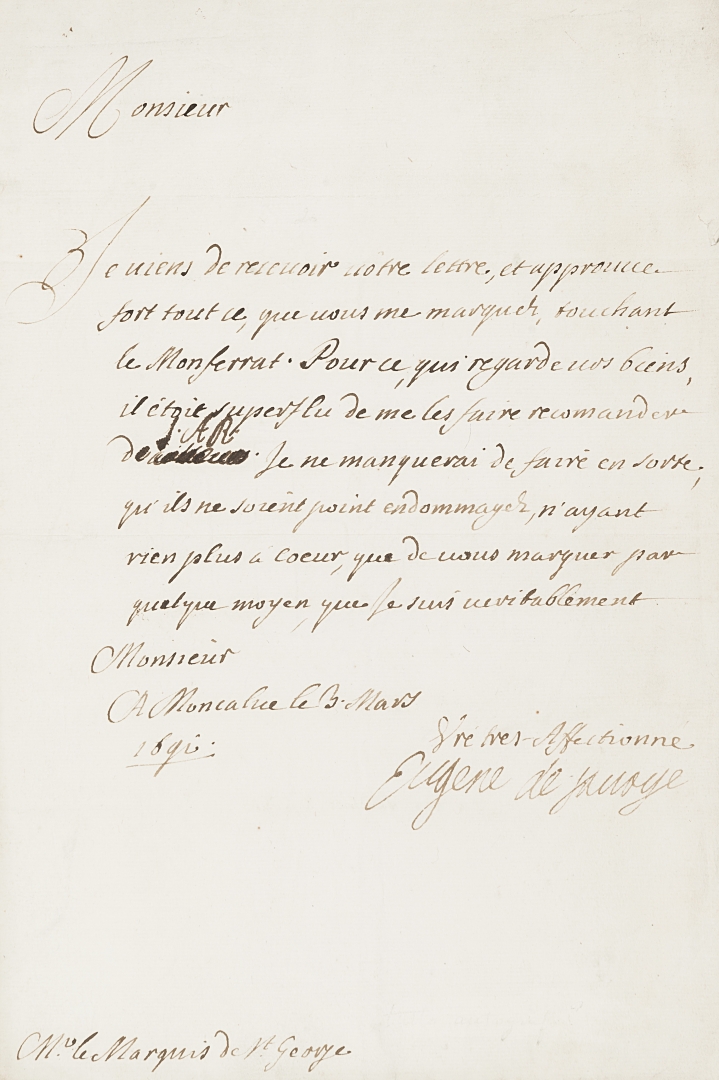 Monsieur
Je viens de recevoir vôtre lettre, et approuve
fort tout ce, que vous me marquez, touchant
le Monferrat. Pour ce, qui regarde vos biens,
il étoit superflu de me les faire recomander
de S. A. R. Je ne manquerai de faire en sorte,
qu'ils ne soient point endommagez, n'ayant
rien plus à coeur, que de vous marquer par
quelque moyen, que Je suis veritablement
Monsieur
A Moncalve le 3. Mars
1691.
Vre tres-Affectionné
Eugene de Savoye
Mr. le Marquis de St. George